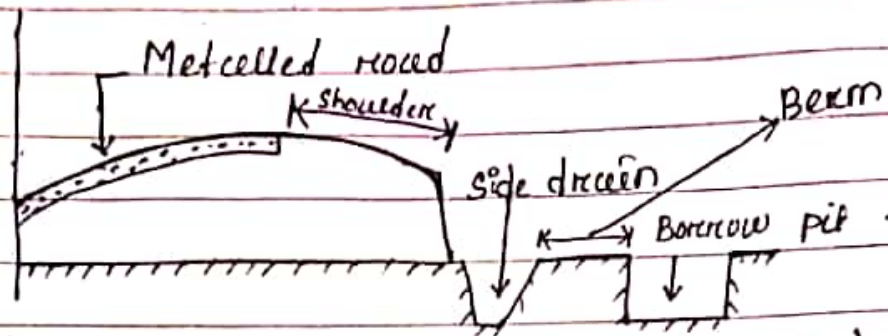 Metcelled roced
Shoulder
Berm
Side drain
Borrow pit